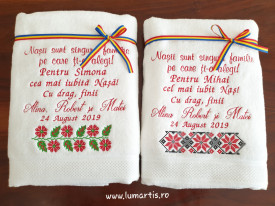 Nașii sunt singura familie
pe care ți-o alegi!
Pentru Simona
cea mai iubită Nașă!
Cu drag, finii
Alina, Robert și Matei
24 August 2019
Nașii sunt singura familie
pe care ți-o alegi!
Pentru Mihai
cel mai iubit Naș!
Cu drag, finii
Alina, Robert și Matei
24 August 2019
www.lumartis.ro